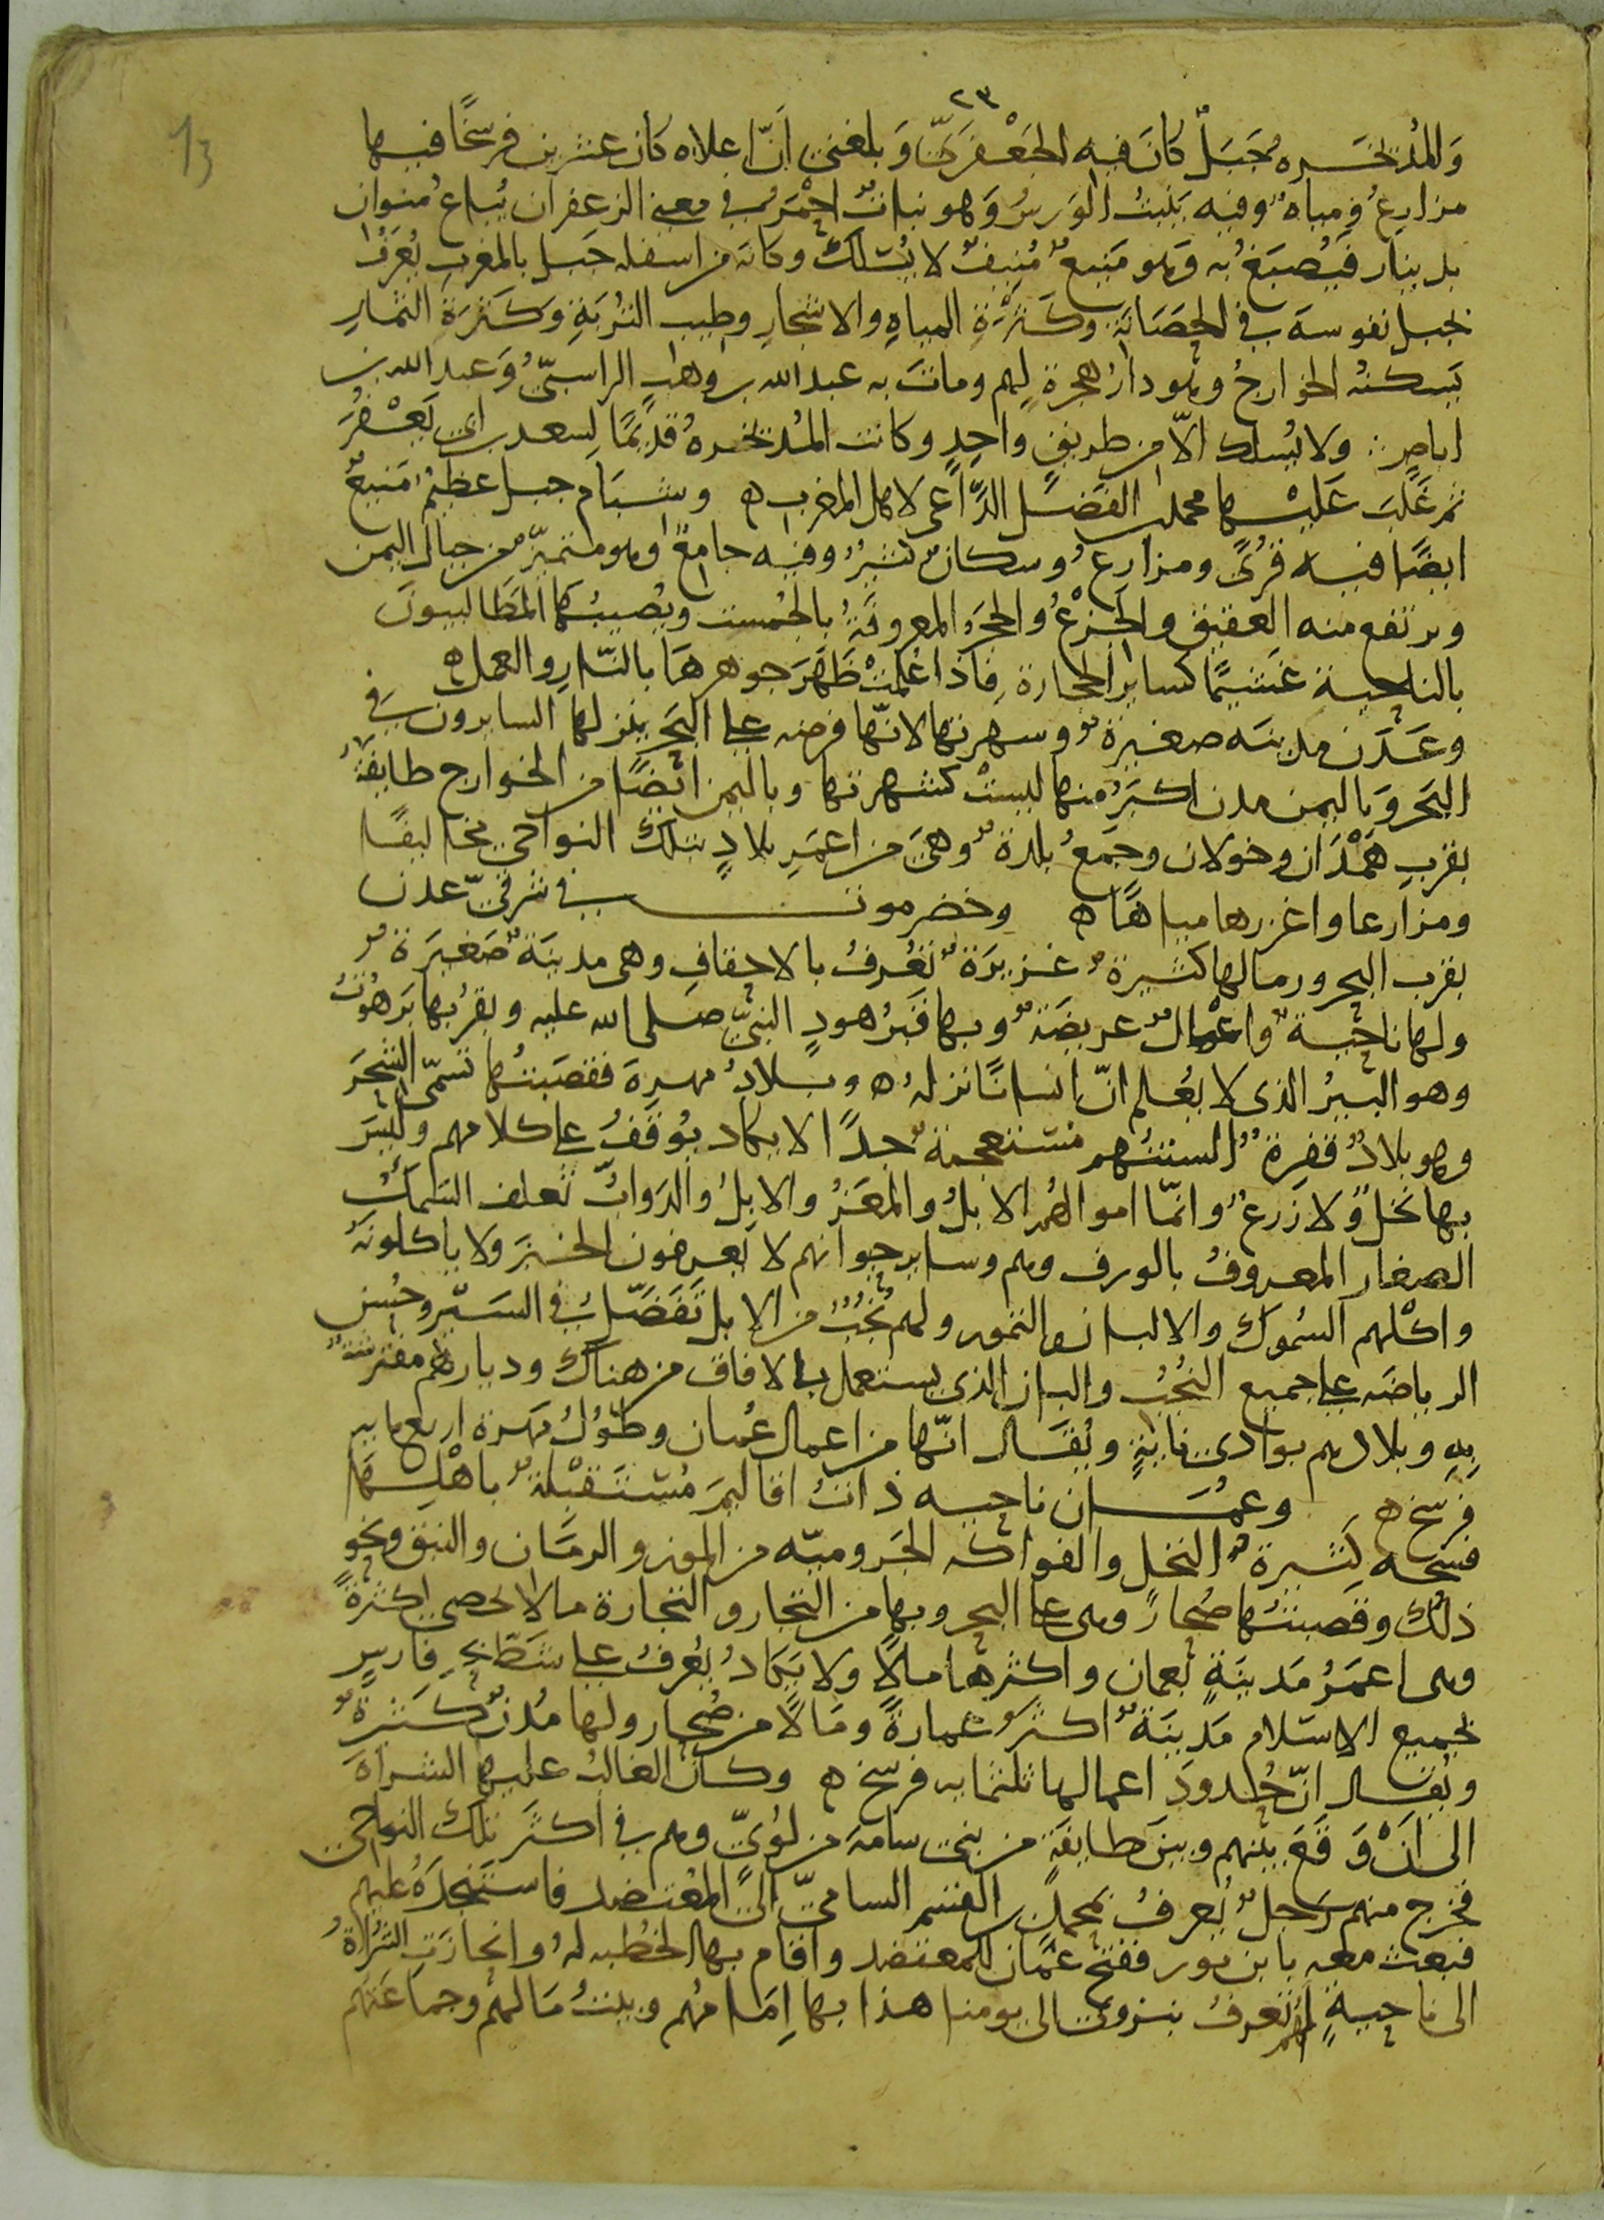 ٢٣
13
وَالمُذيخَره جَبَلٌ كانَ فيه الجَعْفَريّ وَبلغني اَنّ اعلاه كان عشرين فرسخًا فيها
مزارعُ ومياهٌ وفيه يَنبتُ الوَرسُ وَهو نباتٌ احْمَرُ في معنى الزعفران يُباعُ منوان
بدينار فَيُصبَغُ به وَهو مَنيعٌ مُنيفٌ لا يُسْلَكُ وكانه من اسفله جَبل بالمغرب يُعرَفُ
بجبل نفوسه في الحَصَانَة وكَثرَةِ المياهِ والاشجارِ وطيب التُربَةِ وَكَثرَةِ الثمارِ
يَسكنه الخوارجُ وهو دارُ هجرةٍ لهم وماتَ به عبد الله بن وهبٍ الراسبيّ وَعبد الله بن
اباضٍ ولا يُسلك الّا من طريقٍ واحدٍ وكانت المُذيخره قديمًا لسعد بن ابي يَعْفُرَ
ثم غَلَبَ عَليْها محمد بن الفَضل الدّاعى لاهل المغرب ه وشبَام جبل عظيمٌ مَنيعٌ
ايضًا فيه قرًى ومزارعُ وسكان كثيرٌ وفيه جامعٌ وهو متميّز من جبال اليمن
ويرتفع منه العقيق والجَزْعُ والحجرُ المعروفَةُ بالجُمست ويُصيبُها المَطالبيون
بالناحية غشيمًا كساير الحجارة فاذا عُملتْ ظَهَرَ جوهرها بالنّار والعمل ه
وعَدَن مدينه صغيرةٌ وشهرتها لانّها فرضه على البَحر ينزلها السايرون في
البَحر وَباليمن مدن اكبَرُ منها ليستْ كشهرتها وباليمن ايضًا من الخوارج طايفَةٌ
بقربِ هَمْدَان وخولان وجَمعُ بلدةٌ وهيَ من اعمَرِ بلادِ تلك النواحي مخاليفًا
ومزارعا واغزرها مياهًا ه وحضرموت في شرقيّ عدن
بقرب البحر ورمالها كثيرةٌ غزيرَةٌ تُعرفُ بالاحقافِ وهى مدينَةٌ صَغيرَةٌ
ولها ناحيةٌ واعْمالٌ عريضَةٌ وبها قَبرُ هودٍ النبيّ صلى الله عليه وبقُربها بَرَهوتُ
وهو البيرُ الذى لا يُعلم انّ انسانًا نزله ه وبلادُ مهرةَ فقصَبتُها تسمّى الشحَر
وهو بلادٌ قفرةٌ السنتُهم مستعجمةٌ جدًّا لا يكاد يُوقَفُ على كلامهم وليسَ
بها نخلٌ ولا زرعٌ وانّما اموالهُم الابلُ والمعَزُ والابِلُ والدَوابُّ تُعلف السَّمكُ
الصغار المعروفُ بالورق وهم وساير جوانهم لا يَعرفون الخبزَ ولا ياكلونَهُ
واكْلهم السُموك والالبان والتمور ولهم نُجُبٌ من الابل تَفَضّلُ في السَيْر وحُسن
الرياضَه على جميع النُجُب واللبان الذى يستعمل بالافاق من هناك وديارهُم مفترشةٌ
به وبلادهم بوادى نايةٍ ويُقال انّها من اعمال عُمان وطُولُ مَهرة اربع مايه
فرسخ ه وعُمَان ناحيه ذاتُ اقاليمَ مُستَقبْلةٌ باهْلها
فسحه كثيرةُ النخل والفواكه الجَروميّه من الموز والرمّان والنبق ونحوِ
ذلك وقصبتُها صُحارُ وهى على البحر وبها من التجار والتجارة ما لا يحصى كثرةً
وهى اعمَرُ مَدينةٍ بعمان واكثرها مالًا ولا يَكادُ يُعرفُ على شَطّ بحرِ فارسٍ
بجميع الاسلام مَدينَةٌ اكثرُ عمارةً ومَالًا من صُحار ولها مُدنٌ كَثيرةٌ
ويُقال انّ حُدودَ اعمالها ثلثمايه فرسخ ه وكانَ الغالبُ عليها الشراة
الى اَنْ وَقَعَ بينهم وبينَ طايفةٍ من بني سامة من لُوَىّ وهم في اكثَر تلك النواحى
فخرج منهم رَجلٌ يُعرفُ بمحمد بن القسم السامىّ الى المعْتضد فاستَنجدَهُ عليهم
فبعث معه بابن ثور ففتح عمَان للمعتضد واقام بها الخُطبه لهُ وانحازَتِ الشُراةُ
الى ناحيةٍ لهم تُعرفُ بنزوى الى يومنا هذا بها اِمَامُهم وبيتُ مَالهم وجماعَتهم